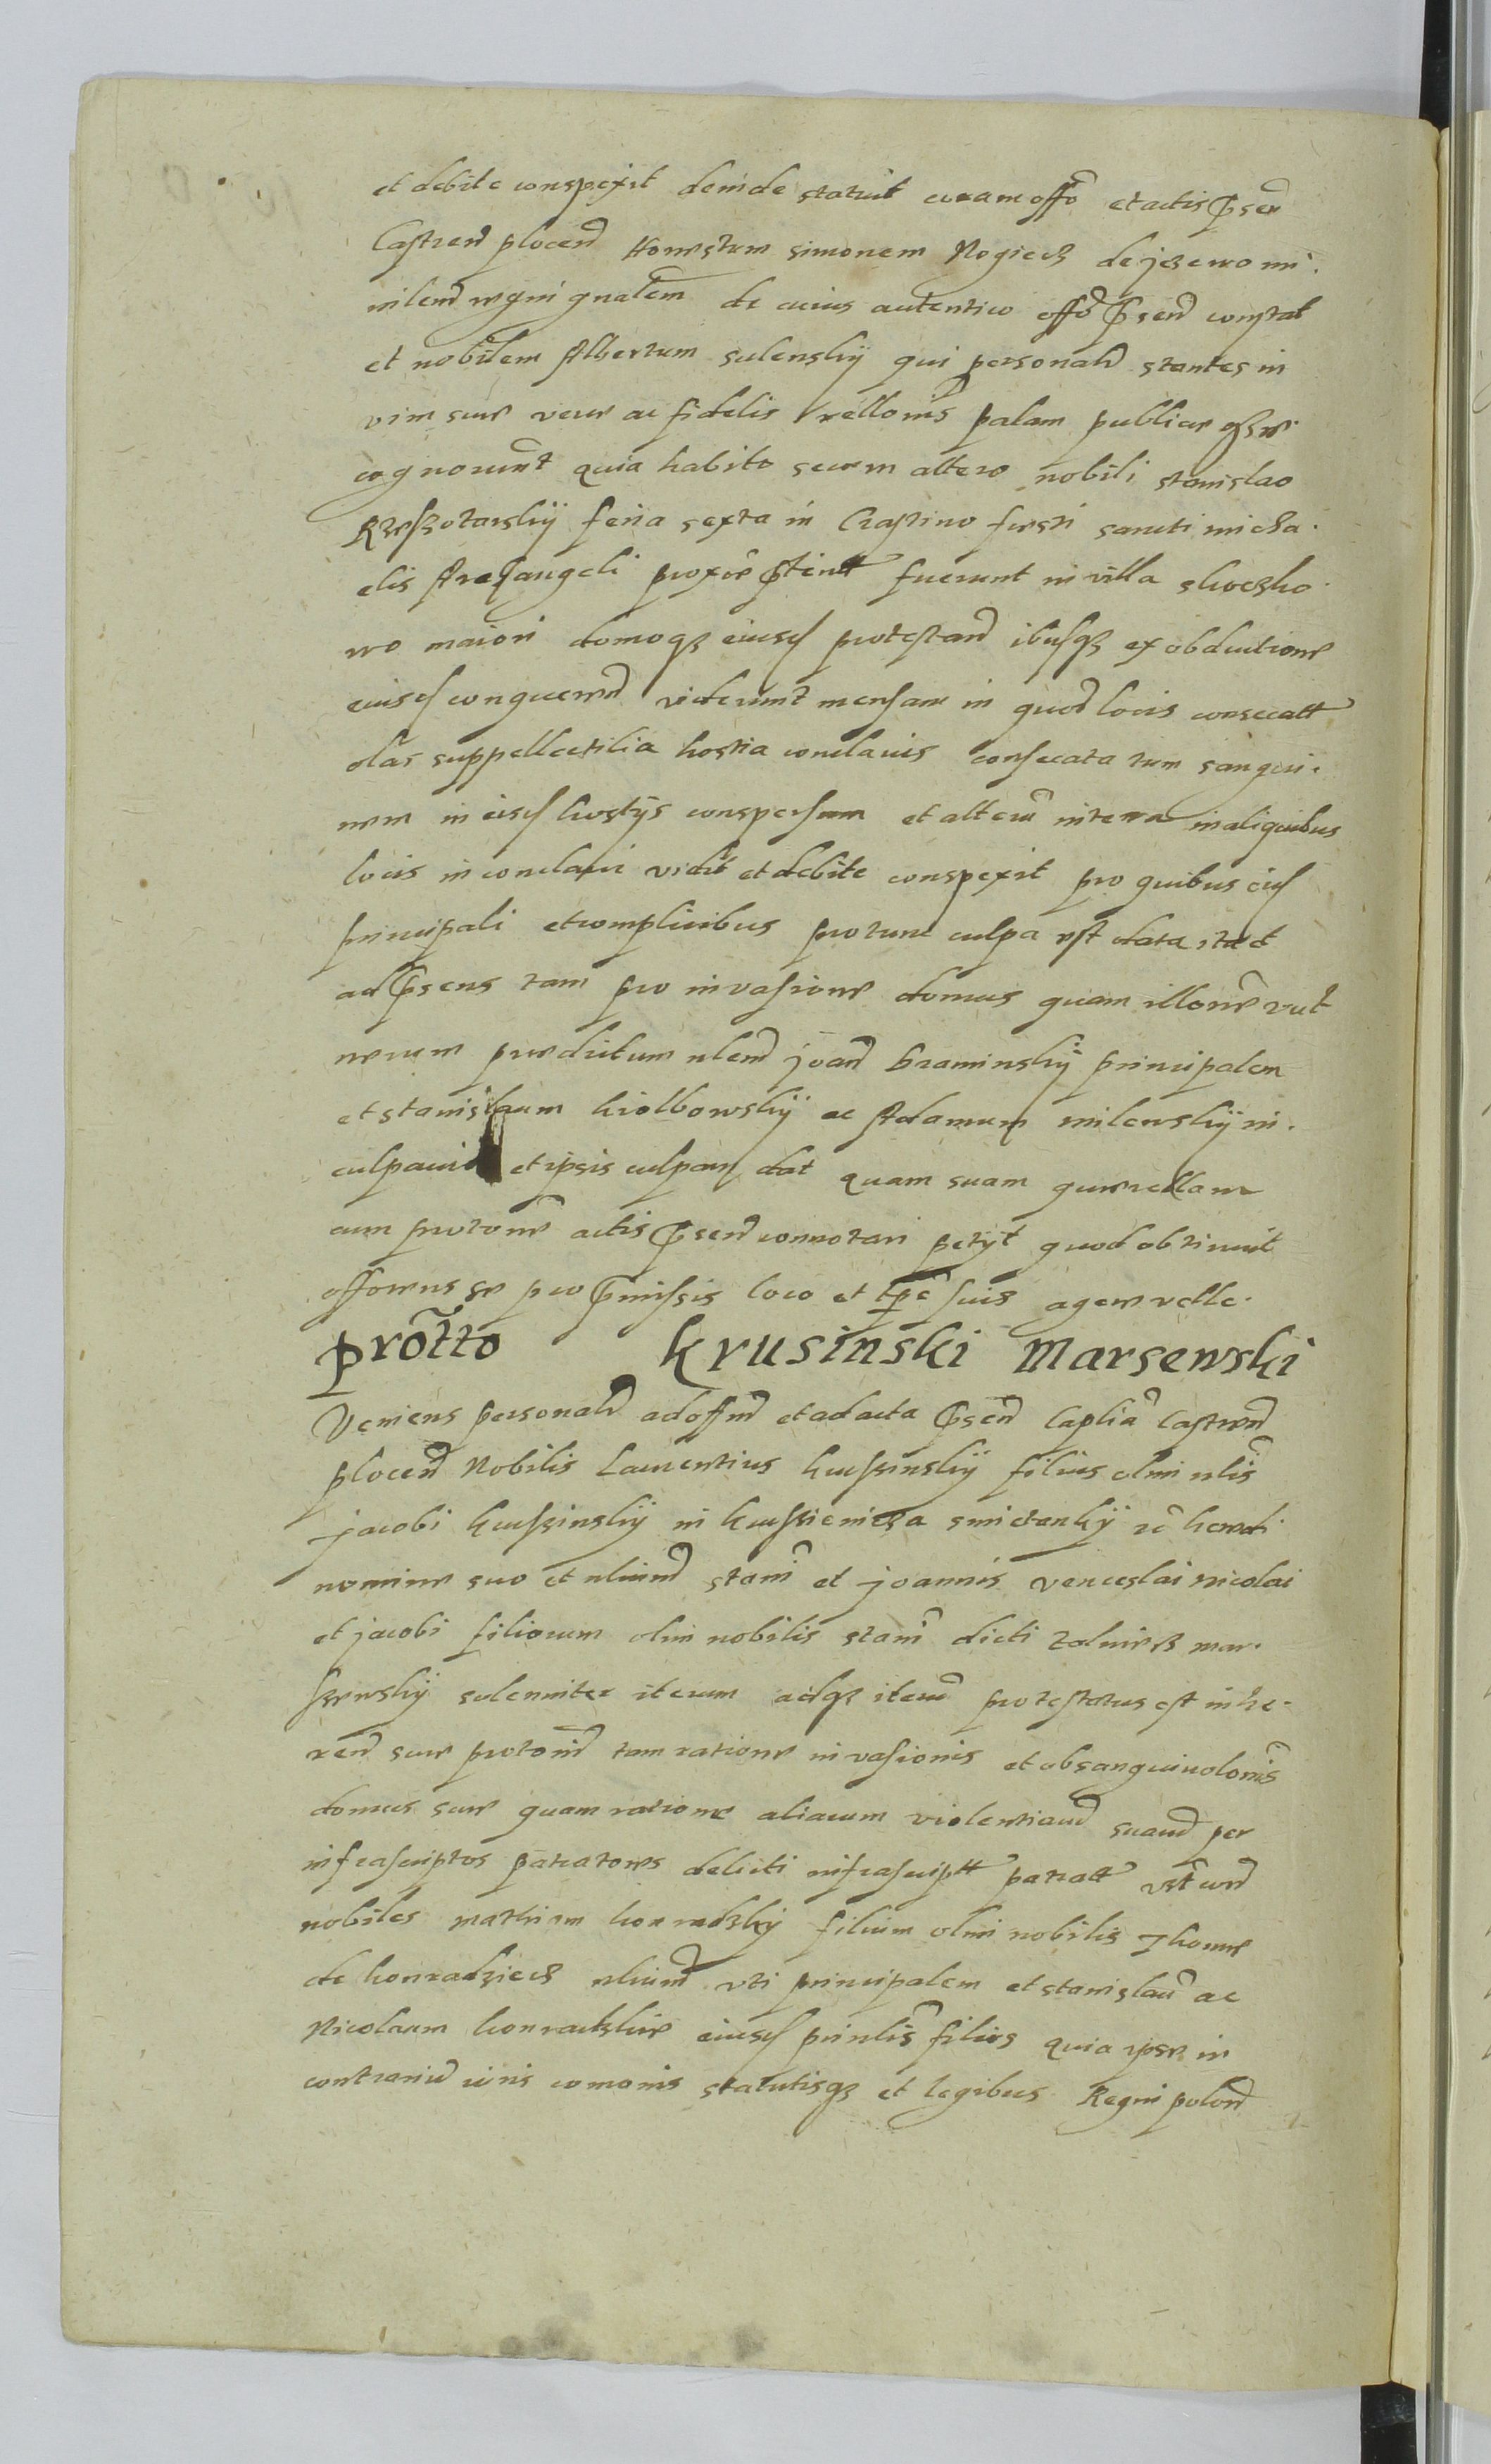 et debite conspexit deinde statuit coram offō et actis p̄sen̄
Castren̄ plocen̄ Honestum simonem Nogiecz de jezewo mi.
nilem̄ regni gn̄alem de cuius autentico offō p̄sen̄ constat
et nobilem Albertum sulenskÿ qui personalr̄ stantes in
vim sue vere ac fidelis rellōnis palam publice
cognorun̄t quia habito secum altero nobili stanislao
Rzeszotarskÿ feria sexta in Crastino festi sancti micha.
elis Archangeli proxīe p̄terit fuerunt in villa skoczko.
wo maiori domoqz eiusd protestan̄ ibusqz ex obductione
eiusd conqueren̄ viderunt mensam in quod locis consecatt
olas suppellectilia hostia conclauis consecata tum sangui.
nem in eisd hostÿs conspersum et alterū intera in aliquibus
locis in conclaui vidit et debite conspexit pro quibus eisd
principali et complicibus protunc culpa est data ita et
ad p̄sens tam pro invasione domus quam illorīe vul
nerum predictum nlem̄ joan̄ Graminskÿ principalem
et stanislaum kiolbowskÿ ac Adamum milewskÿ in.
culpauit et ipsis culpam dat quam suam querellam
cum protōne actis p̄sen̄ connotari petÿt quod obtinuit
offerens se pro p̄missis loco et tp̄e suis agere velle.
prōtto krusinski Marsewski
Veniens personalr̄ ad offm̄ et ad acta p̄sēn̄ Caplia Castren̄
plocen̄ Nobilis Laurentius kruszinskÿ filius olim nlis
jacobi kruszinskÿ in kruszienicza smietankÿ rc̄ heredi
nomine suo et nlium̄ stani et joannis venceslai nicolai
et jacobi filiorum olim nobilis stani dicti zolnierz mar.
szewskÿ solenniter iterum adqz iterū protestatus est inhe.
ren̄ sue protōni tam ratione invasionis et obsanguinolōnis
domus sue quam ratione aliarum violentiarū suarū per
infrascriptos patratores delicti infrascriptt patratt vt̄
nobiles mathiam konradzkÿ filium olim nobilis Thome
de konradziecz nlium̄ vti principalem et stanislaū ac
Nicolaum konradzkie eiusd prinlis filios quia ipse in
contrariū iūris comonis statutisqz et legibus Regni polon̄